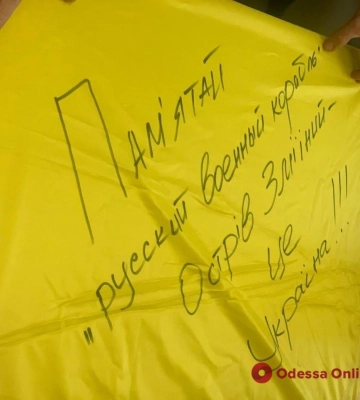 Пам'ятай
"русский военный корабль"
Острів Зміїний-
це
Україна!!!
Odessa Onli